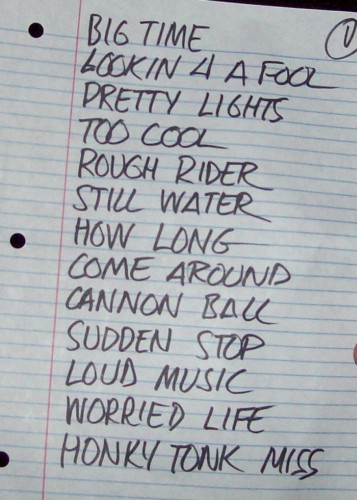 BIG TIME
LOOKIN 4 A FOOL
PRETTY LIGHTS
TOO COOL
ROUGH RIDER
STILL WATER
HOW LONG
COME AROUND
CANNON BALL
SUDDEN STOP
LOUD MUSIC
WORRIED LIFE
HONKY TONK MISS